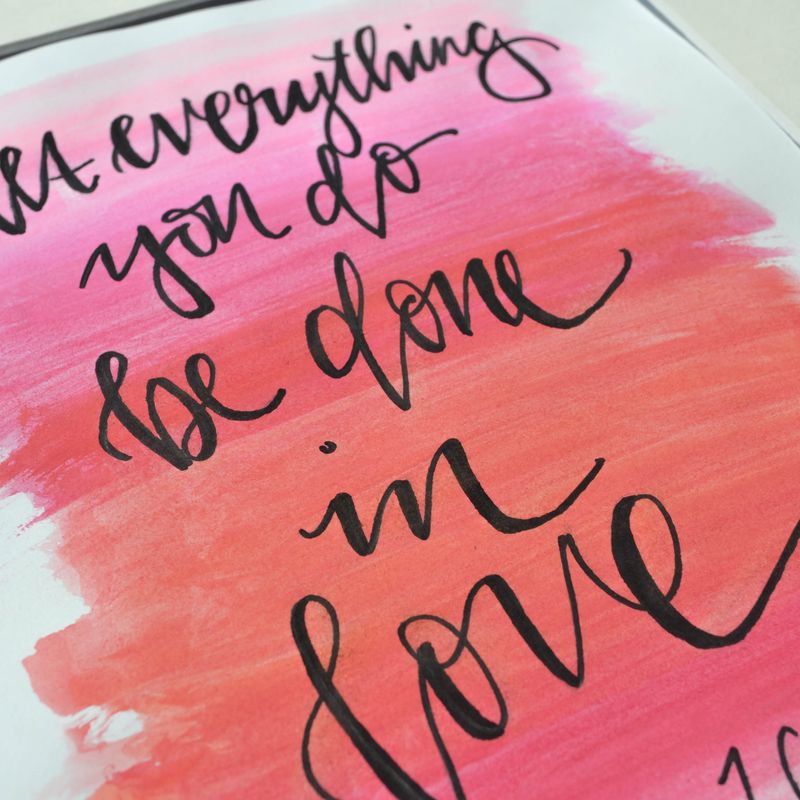 let everything
you do
be done
in
love
1